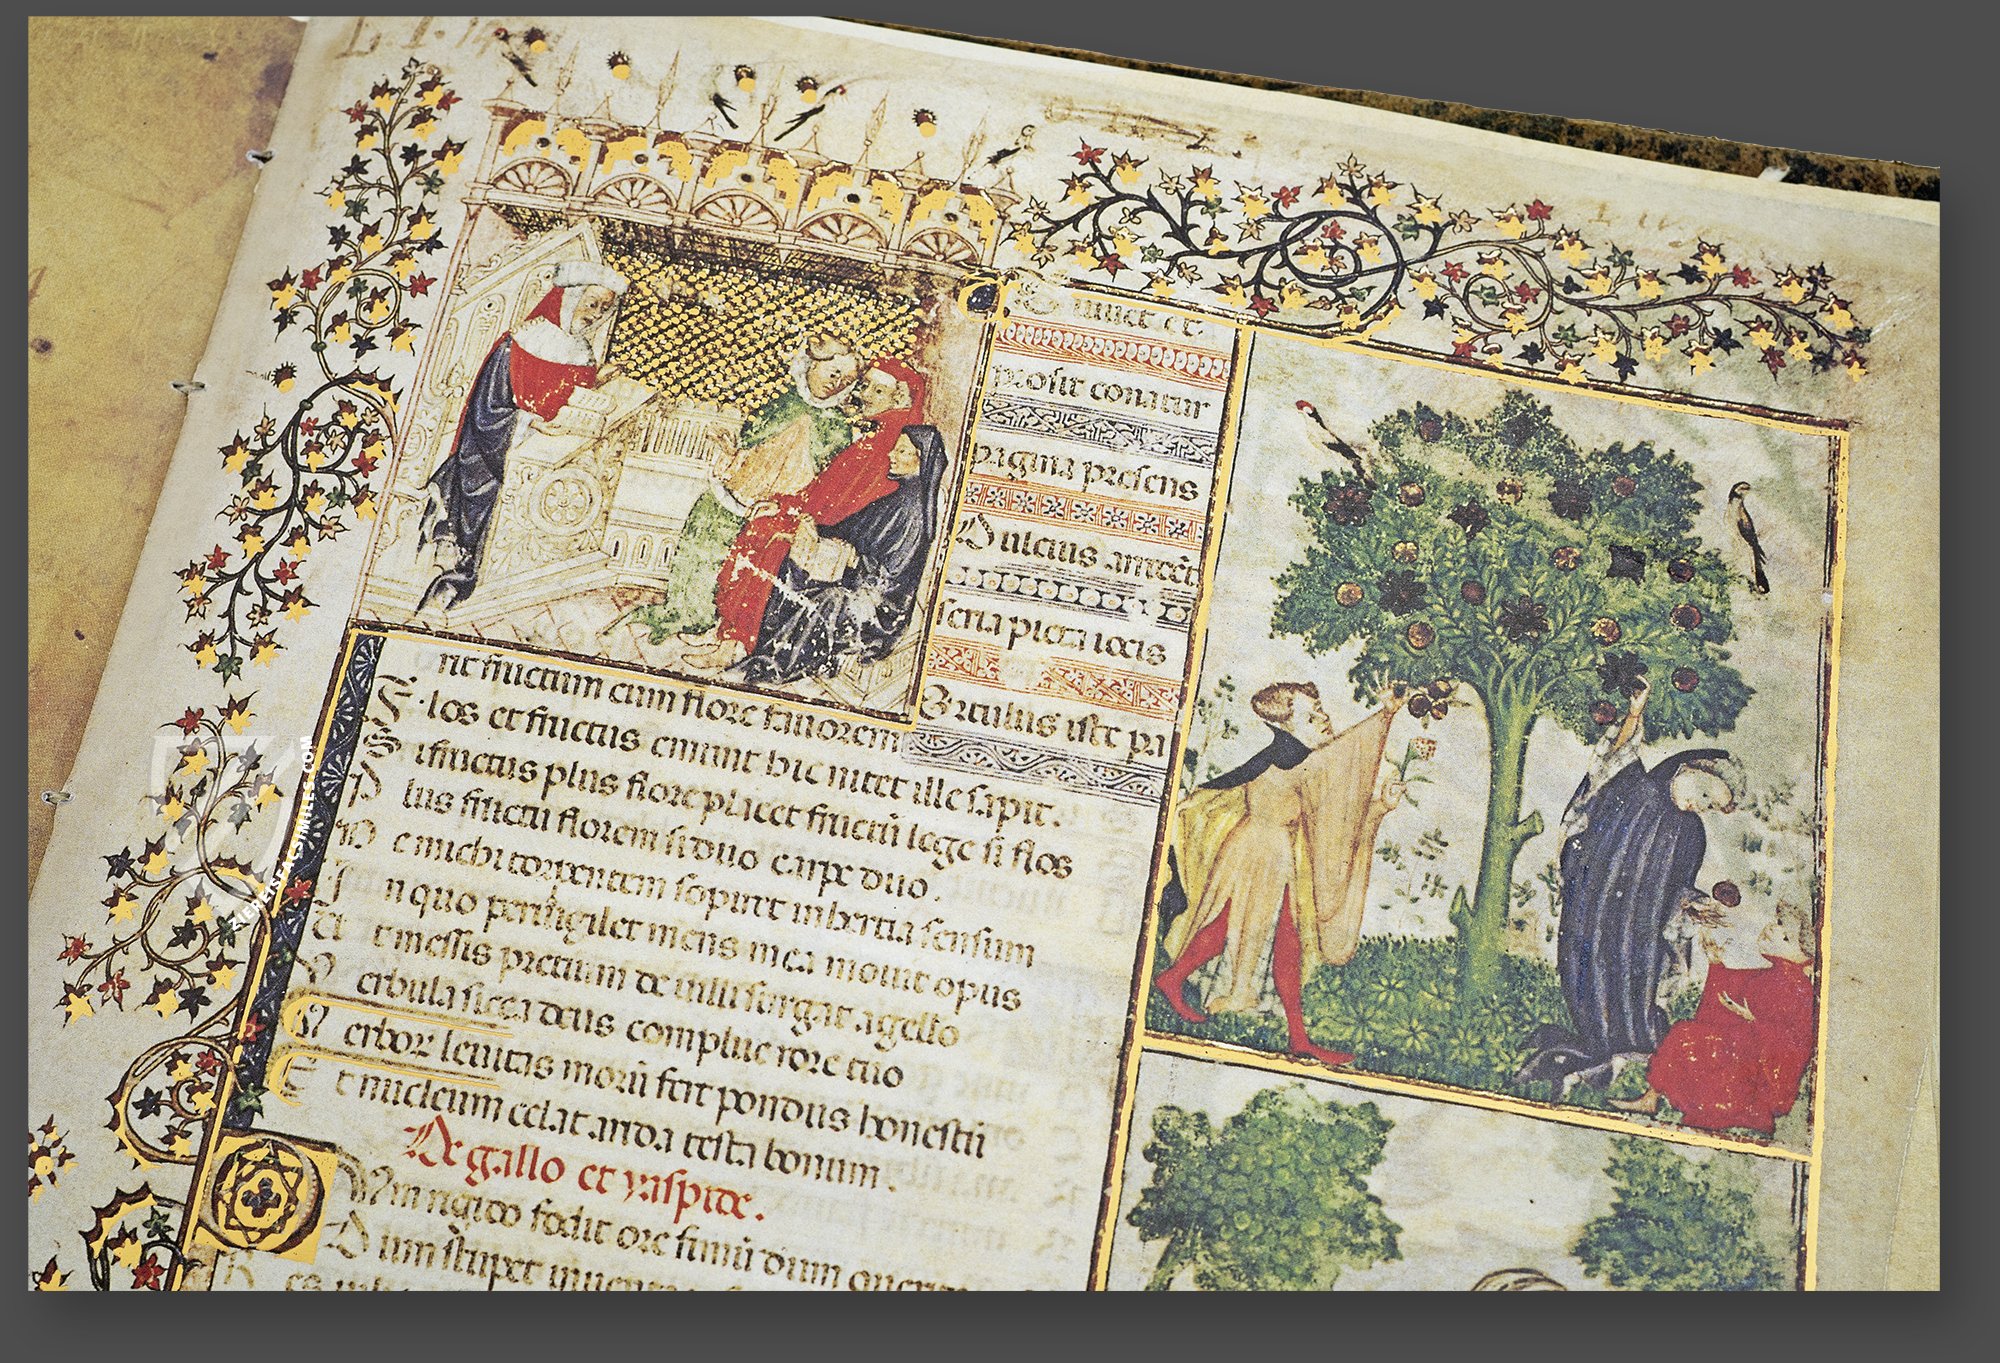 iuuet et
prosit conatur
pagina presens
Dulcius arridēt
seria picta iocis
Ortulus iste pa
rit fructum cum flore fauorem
Flos et fructus emunt hic nitet ille sapit.
Si fructus plus flore placet fructū lege si flos
Plus fructu florem si duo carpe duo.
Ne michi torpentem sopiret inhertia sensum
In quo peruigilet mens mea mouit opus
Ut messis pretium de uili surgat agello
Verbula sicca deus complue rore tuo
Verbor leuitas morū fert pondus honestū
Et nucleum celat arida testa bonum.
De gallo et iaspide.
Dum rigido fodit ore fimū dum
Dum stupet
ZIEREISFACSIMILES.COM